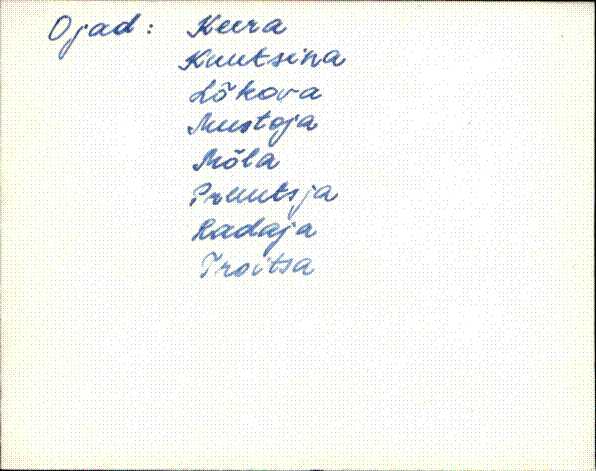 Ojad: Keera
Kuutsina
Lõkova
Mustoja
Mõla
Pruntsja
Radaja
Troitsa